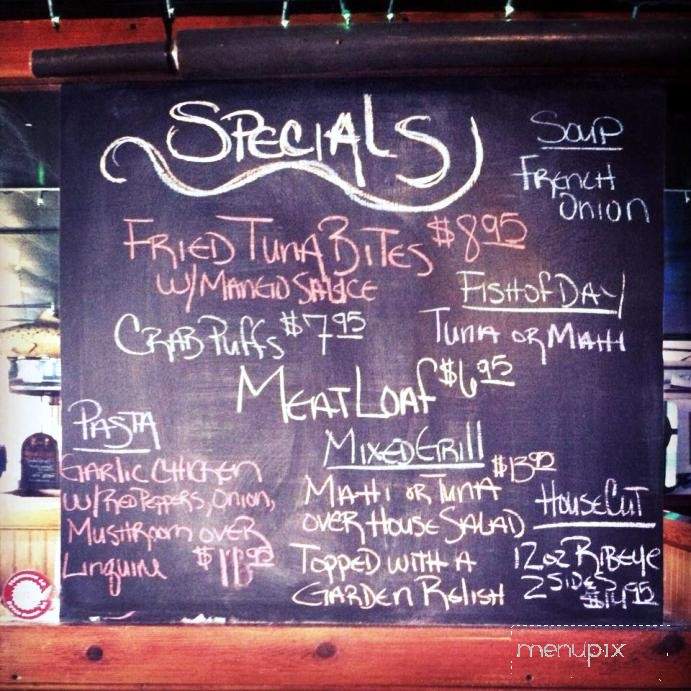 SPECIALS
SOUP
FRENCH
ONION
FRIED TUNA BITES $8.95
W/ MANGO SAUCE
CRAB PUFFS $7.95
FISH OF DAY
TUNA OR MAHI
MEATLOAF $6.95
PASTA
GARLIC CHICKEN
W/ RED PEPPERS, ONION,
MUSHROOM OVER
LINGUINE
MIXED GRILL $13.92
MAHI OR TUNA
OVER HOUSE SALAD
TOPPED WITH A
GARDEN RELISH
HOUSE CUT
12 OZ RIBEYE
2 SIDES
$14.95
menupix